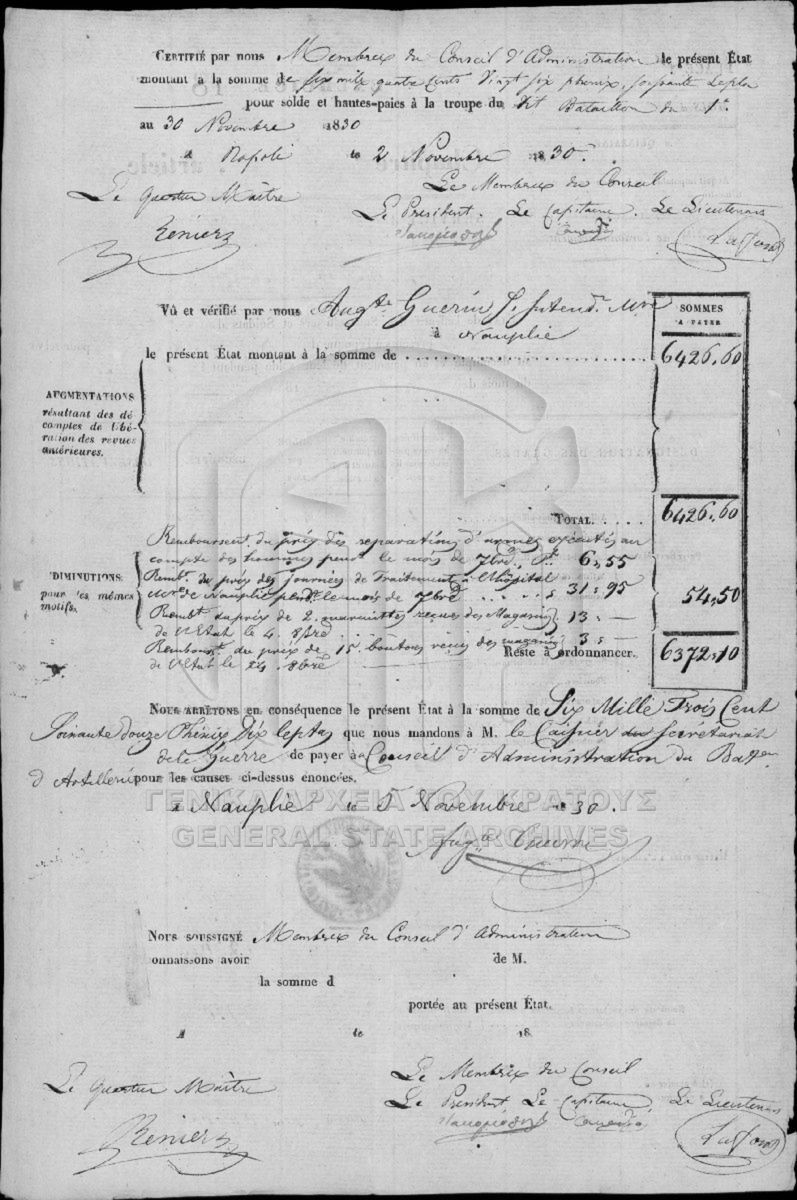 CERTIFIÉ par nous Membres du Conseil d'Administration le présent État
montant a la somme de six mille quatre cents vingt six phenix, soixante Lepta
pour solde et hautes-paies à la troupe du dit Bataillon du 1er
au 30 Novembre 1830
A Napoli le 2 Novembre 1830.
Le Quartier Maître
Le Membres du Conseil
Le Président. Le Capitaine. Le Lieutenant
Reniery
Vû et vérifié par nous Augte Guerin S. Intendt Mre
à Nauplie
SOMMES
A PAYER
le présent État montant à la somme de
6426.60
AUGMENTATIONS
résultant des dé
comptes de libé-
ration des revues
antérieures.
TOTAL.
6426.60
DIMINUTIONS
pour les mêmes
motifs.
Remboursent du prix des reparations d'armes exécutés au
compte des hommes pendt le mois de 7bre 6,55
Rembt du prix des journées de Traitement à l'hôpital
Mre de Nauplie pendt le mois de 7bre 31,95
Rembt du prix de 2 reçues des Magasins 13,—
de l'Etat le 4. 8bre
Remboursnt du prix de 15 boutons reçus des magasins 3,—
de l'Etat le 8bre
54,50
Reste à ordonnancer.
6372,10
NOUS ARRÊTONS en conséquence le présent État à la somme de Six Mille Trois Cent
Soixante douze Phénix Dix leptas que nous mandons à M. le Caissier du Secrétariat
de la Guerre de payer à Conseil d'Administration du Baton
d'Artillerie pour les causes ci-dessus enoncées.
A Nauplie le 5 Novembre 1830.
Augte Guerin
ΓΕΝΙΚΑ ΑΡΧΕΙΑ ΤΟΥ ΚΡΑΤΟΥΣ
GENERAL STATE ARCHIVES
NOUS SOUSSIGNÉ Membres du Conseil d'Administration
onnaissons avoir de M.
la somme d
portée au présent État.
A le 18
Le Quartier Maître
Le Membres du Conseil
Le Président Le Capitaine Le Lieutenant
Reniery